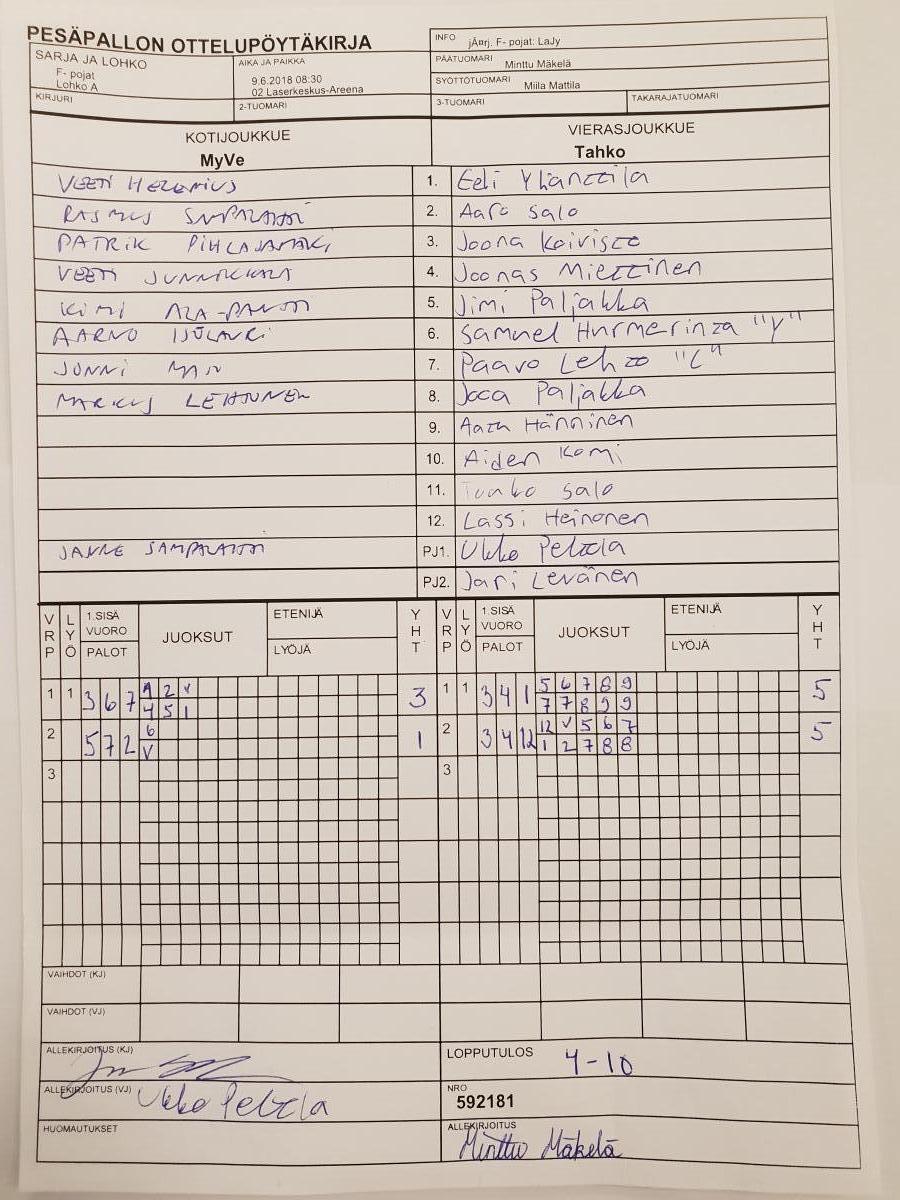 PESÄPALLON OTTELUPÖYTÄKIRJA
SARJA JA LOHKO
F- pojat
Lohko A
AIKA JA PAIKKA
9.6.2018 08:30
02 Laserkeskus-Areena
INFO jÄnrj. F- pojat: LaJy
PÄÄTUOMARI Minttu Mäkelä
SYÖTTÖTUOMARI Miila Mattila
KIRJURI
2-TUOMARI
3-TUOMARI
TAKARAJATUOMARI
KOTIJOUKKUE
MyVe
VIERASJOUKKUE
Tahko
VEETI HELENIUS 1. Eeli Ylianttila
RASMUS SAMPALAHTI 2. Aaro Salo
PATRIK PIHLAJAMÄKI 3. Joona Koivisto
VEETI JUNNIKKALA 4. Joonas Miettinen
KIMI ALA-PANTTI 5. Jimi Paljakka
AARNO 6. Samuel Hurmerinta "Y"
JONNI 7. Paavo Lehto "L"
MARKUS LEHTONEN 8. Joca Paljakka
9. Hänninen
10. Aiden Komi
11. Salo
12. Lassi Heinonen
JANNE SAMPALAHTI PJ1. Ukko Peltola
PJ2. Jari Levänen
VRP LYÖ 1.SISÄ VUORO PALOT JUOKSUT ETENIJÄ LYÖJÄ YHT VRP LYÖ 1.SISÄ VUORO PALOT JUOKSUT ETENIJÄ LYÖJÄ YHT
1 1 3 6 7 1 2 V 3 1 1 3 4 1 5 6 7 8 9 5
4 5 1 7 7 8 9 9
2 5 7 2 6 1 2 3 4 12 12 V 5 6 7 5
V 1 2 7 8 8
3 3
VAIHDOT (KJ)
VAIHDOT (VJ)
ALLEKIRJOITUS (KJ)
LOPPUTULOS 4-10
ALLEKIRJOITUS (VJ) Ukko Peltola
NRO
592181
HUOMAUTUKSET
ALLEKIRJOITUS
Minttu Mäkelä